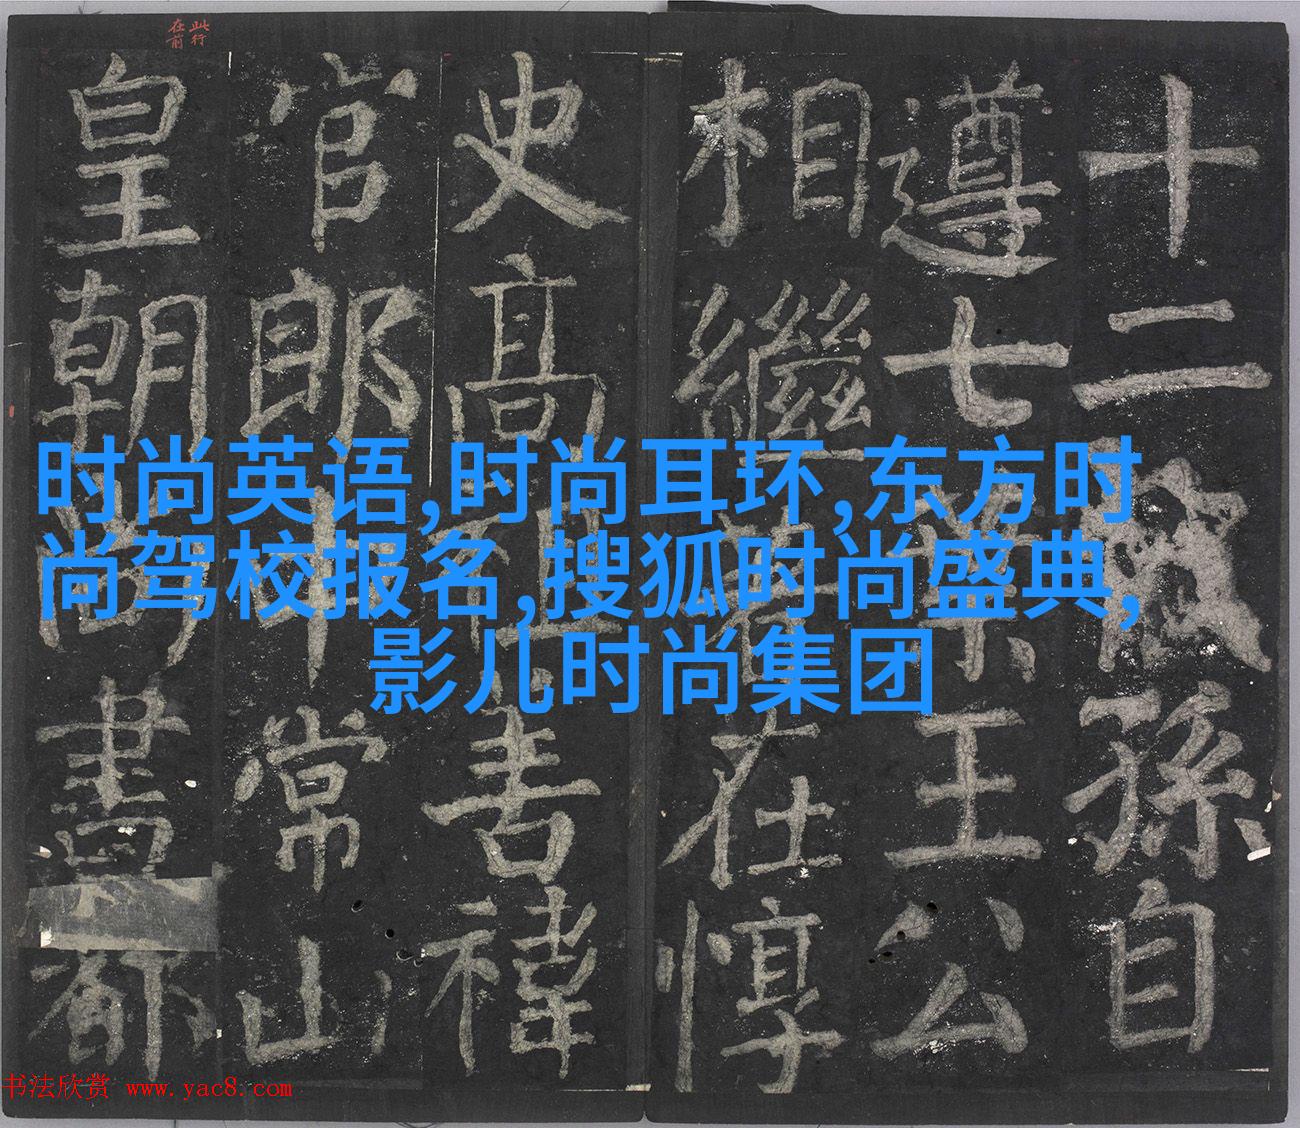 此行
在前
十二孫自
遵七葉王公
相繼在惇
史高禕
官郎中常山
皇朝尚書都
时尚英语,时尚耳环,东方时
尚驾校报名,搜狐时尚盛典,
影儿时尚集团
书法欣赏 www.yac8.com